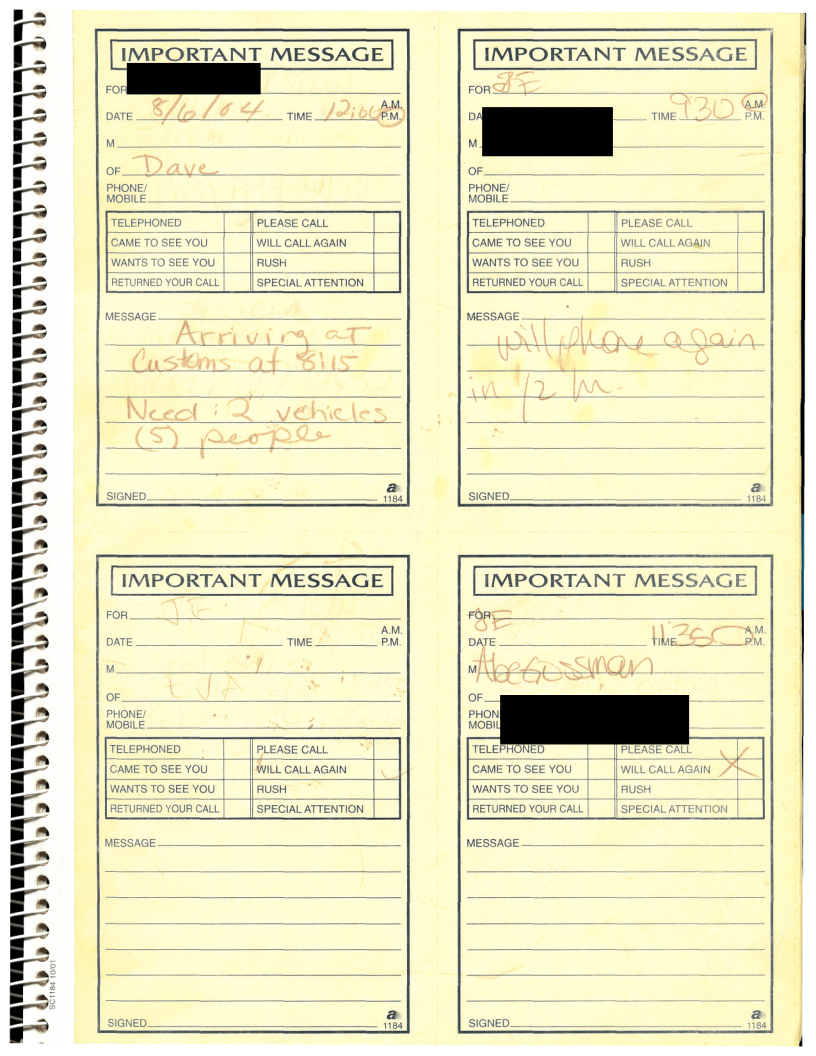 IMPORTANT MESSAGE
FOR
DATE 8/6/04 TIME 12:00 A.M. P.M.
M
OF Dave
PHONE/
MOBILE
TELEPHONED PLEASE CALL
CAME TO SEE YOU WILL CALL AGAIN
WANTS TO SEE YOU RUSH
RETURNED YOUR CALL SPECIAL ATTENTION
MESSAGE
Arriving at
Customs at 8:15
Need : 2 vehicles
(5) people
SIGNED
a
1184
IMPORTANT MESSAGE
FOR JE
DA TIME 930 A.M. P.M.
M
OF
PHONE/
MOBILE
TELEPHONED PLEASE CALL
CAME TO SEE YOU WILL CALL AGAIN
WANTS TO SEE YOU RUSH
RETURNED YOUR CALL SPECIAL ATTENTION
MESSAGE
will phone again
in 1/2 hr.
SIGNED
a
1184
IMPORTANT MESSAGE
FOR J.E.
DATE TIME A.M. P.M.
M
OF
PHONE/
MOBILE
TELEPHONED PLEASE CALL
CAME TO SEE YOU WILL CALL AGAIN
WANTS TO SEE YOU RUSH
RETURNED YOUR CALL SPECIAL ATTENTION
MESSAGE
SIGNED
a
1184
IMPORTANT MESSAGE
FOR JE
DATE TIME A.M. P.M.
M Abe Gossman
OF
PHON
MOBIL
TELEPHONED PLEASE CALL
CAME TO SEE YOU WILL CALL AGAIN X
WANTS TO SEE YOU RUSH
RETURNED YOUR CALL SPECIAL ATTENTION
MESSAGE
SIGNED
a
1184
SC1184 10/01